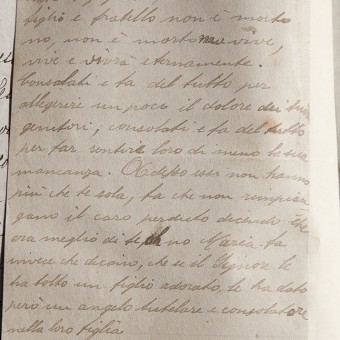 figlio e fratello non è morto
no, non è morto ma vive,
vive e vivrà eternamente.
Consolati e fa del tutto per
allegerire un poco il dolore dei tuoi
genitori, consolati e fa del tutto
per far sentire loro di meno la sua
mancanza. Adesso essi non hanno
più che te sola, fa che non rimpian
gano il caro perduto dicendo che
era meglio di te no Maria fa
invece che dicano, che se il Signor le
ha tolto un figlio adorato, le ha dato
però un angelo tutelare e consolatore
nella loro figlia